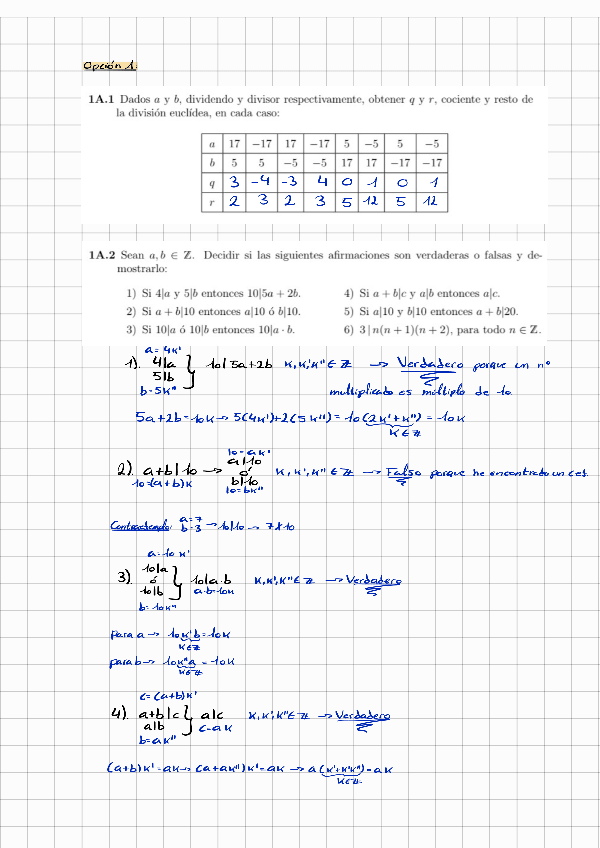 Opción 1.
1A.1 Dados a y b, dividendo y divisor respectivamente, obtener q y r, cociente y resto de
la división euclídea, en cada caso:
a 17 −17 17 −17 5 −5 5 −5
b 5 5 −5 −5 17 17 −17 −17
q 3 -4 -3 4 0 -1 0 1
r 2 3 2 3 5 12 5 12
1A.2 Sean a, b ∈ Z. Decidir si las siguientes afirmaciones son verdaderas o falsas y de-
mostrarlo:
1) Si 4|a y 5|b entonces 10|5a + 2b.
4) Si a + b|c y a|b entonces a|c.
2) Si a + b|10 entonces a|10 ó b|10.
5) Si a|10 y b|10 entonces a + b|20.
3) Si 10|a ó 10|b entonces 10|a · b.
6) 3 | n(n + 1)(n + 2), para todo n ∈ Z.
a = 4k'
1). 4|a
5|b } 10|5a+2b k, k', k'' ∈ Z → Verdadero porque un nº
b=5k'' multiplicado es múltiplo de 10.
5a+2b=10k → 5(4k')+2(5k'')=10(2k'+k'')=10k
k∈Z
10=ak'
2). a+b|10 → a|10 ó b|10 k, k', k'' ∈ Z → Falso porque he encontrado un
10=(a+b)k 10=bk''
a=7
b=3 → 10|10 → 7∤10
a=10k'
3). 10|a
ó
10|b } 10|a·b k, k', k'' ∈ Z → Verdadero
a·b=10k
b=10k''
para a → 10k'b=10k
k∈Z
para b → 10k''a=10k
k∈Z
c=(a+b)k'
4). a+b|c
a|b } a|c k, k', k'' ∈ Z → Verdadero
c=ak
b=ak''
(a+b)k'=ak → (a+ak'')k'=ak → a(k'+k'k'')=ak
k∈Z